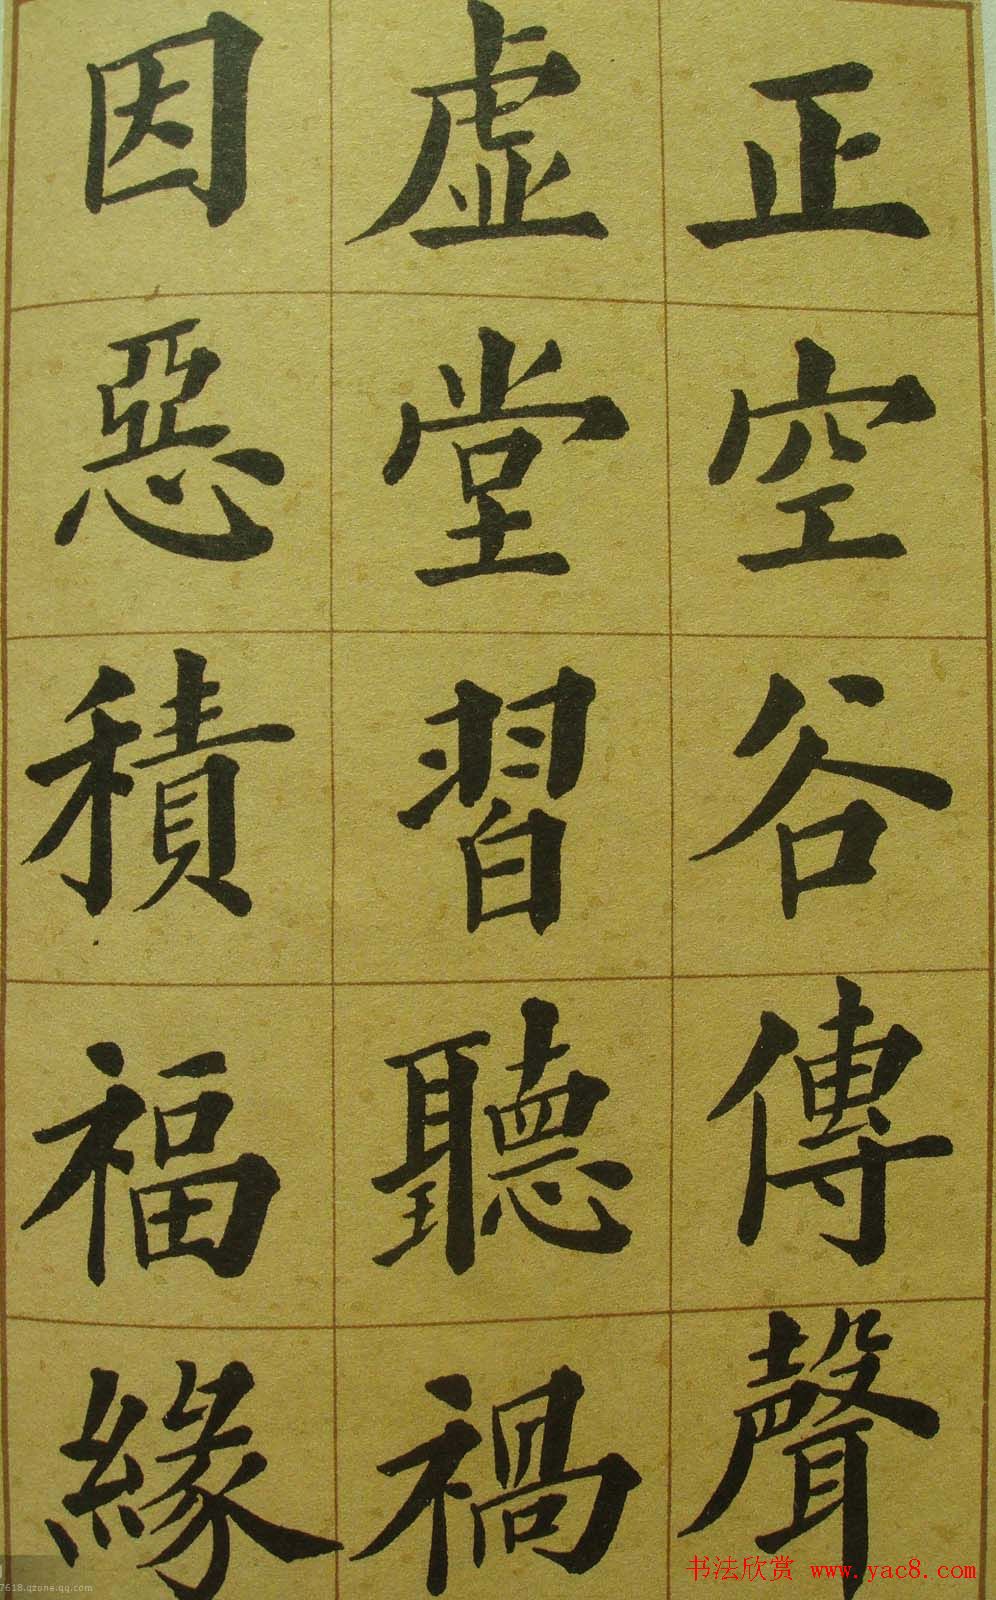 正空谷傳聲
虛堂習聽禍
因惡積福緣
书法欣赏 www.yac8.com
7618.qzone.qq.com